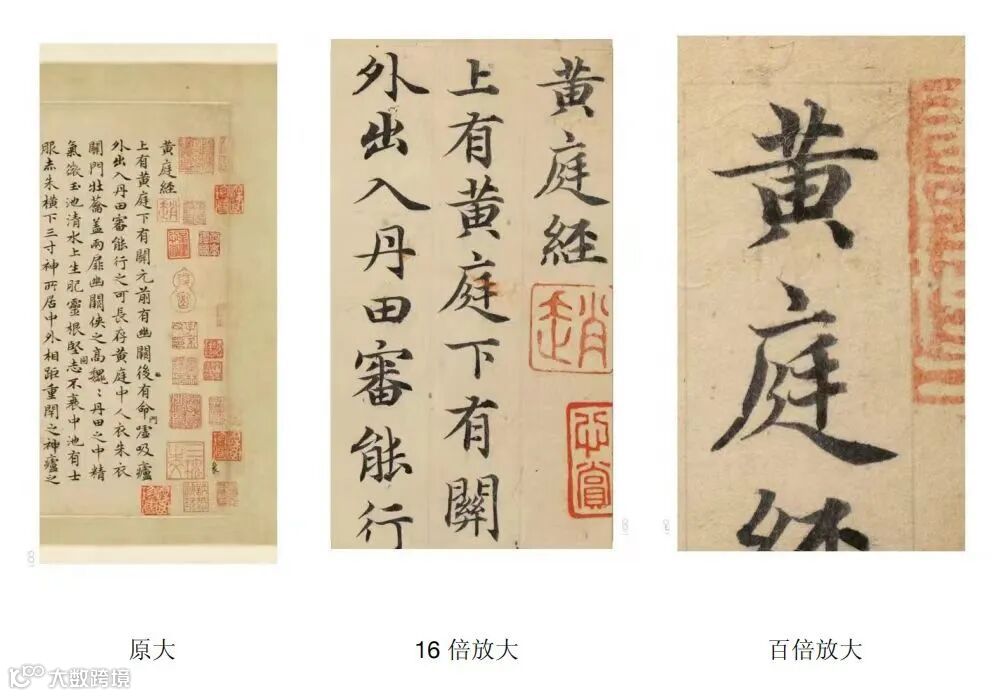 黄庭經
上有黄庭下有關元前有幽闕後有命門噓吸廬
外出入丹田審能行之可長存黄庭中人衣朱衣
關門壯蘥盖兩扉幽闕俠之高巍:丹田之中精
氣微玉池清水上生肥靈根堅固志不衰中池有士
服赤朱橫下三寸神所居中外相距重閉之神廬之
黄庭經
趙
心賞
上有黄庭下有關
外出入丹田審能行
黄庭經
原大
16 倍放大
百倍放大
大数跨境